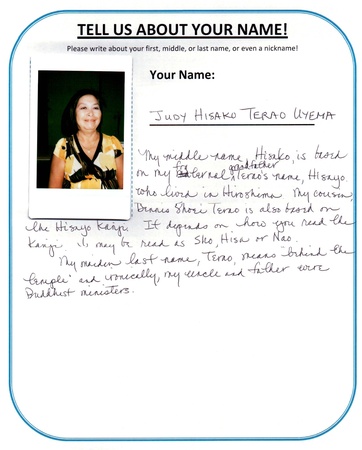 TELL US ABOUT YOUR NAME!
Please write about your first, middle, or last name, or even a nickname!
Your Name:
JUDY HISAKO TERAO UYEMA
My middle name, Hisako, is based
on my paternal grandfather Terao's name, Hisayo,
who lived in Hiroshima. My cousin,
Dennis Shoji Terao is also based on
the Hisayo Kanji. It depends on how you read the
Kanji. It may be read as Sho, Hisa or Nao.
My maiden last name, Terao, means "behind the
temple" and ironically, my uncle and father were
Buddhist ministers.